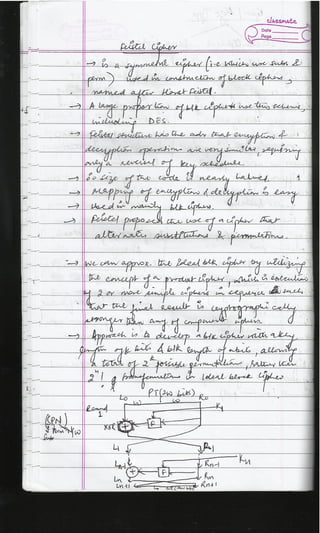 classmate
Date
Page
Feistel Cipher
→ is a symmetric cipher (i.e. which use subs &
perm) used in construction of block ciphers,
named after Horst Feistel.
→ A large proportion of blk ciphers use this scheme,
including DES.
→ Feistel structure has the adv that encryption &
decryption operation are very similar, requiring
only a reversal of key schedule.
→ So size of the code is nearly halved.
→ Mapping of encryption & decryption is easy
→ Used in mainly blk ciphers.
→ Feistel proposed the use of a cipher that
alternates substitutions & permutations.
→ We can approx. the Ideal blk cipher by utilizing
the concept of a product cipher, which is execution
of 2 or more simple ciphers in sequence such
that the final result is cryptographically
stronger than any of component ciphers.
→ Approach is to develop a blk cipher with a key
length of k bits & blk length of n bits, allowing
a total of 2^k possible permutations, rather than
2^n! of transformations in Ideal block cipher
PT (2w bits)
L0 w w R0
Round
1
K1
(SPN)
XOR + F
L1 R1
Ln-1 Rn-1 Kn
+ F
Ln Rn
Ln+1 Rn+1